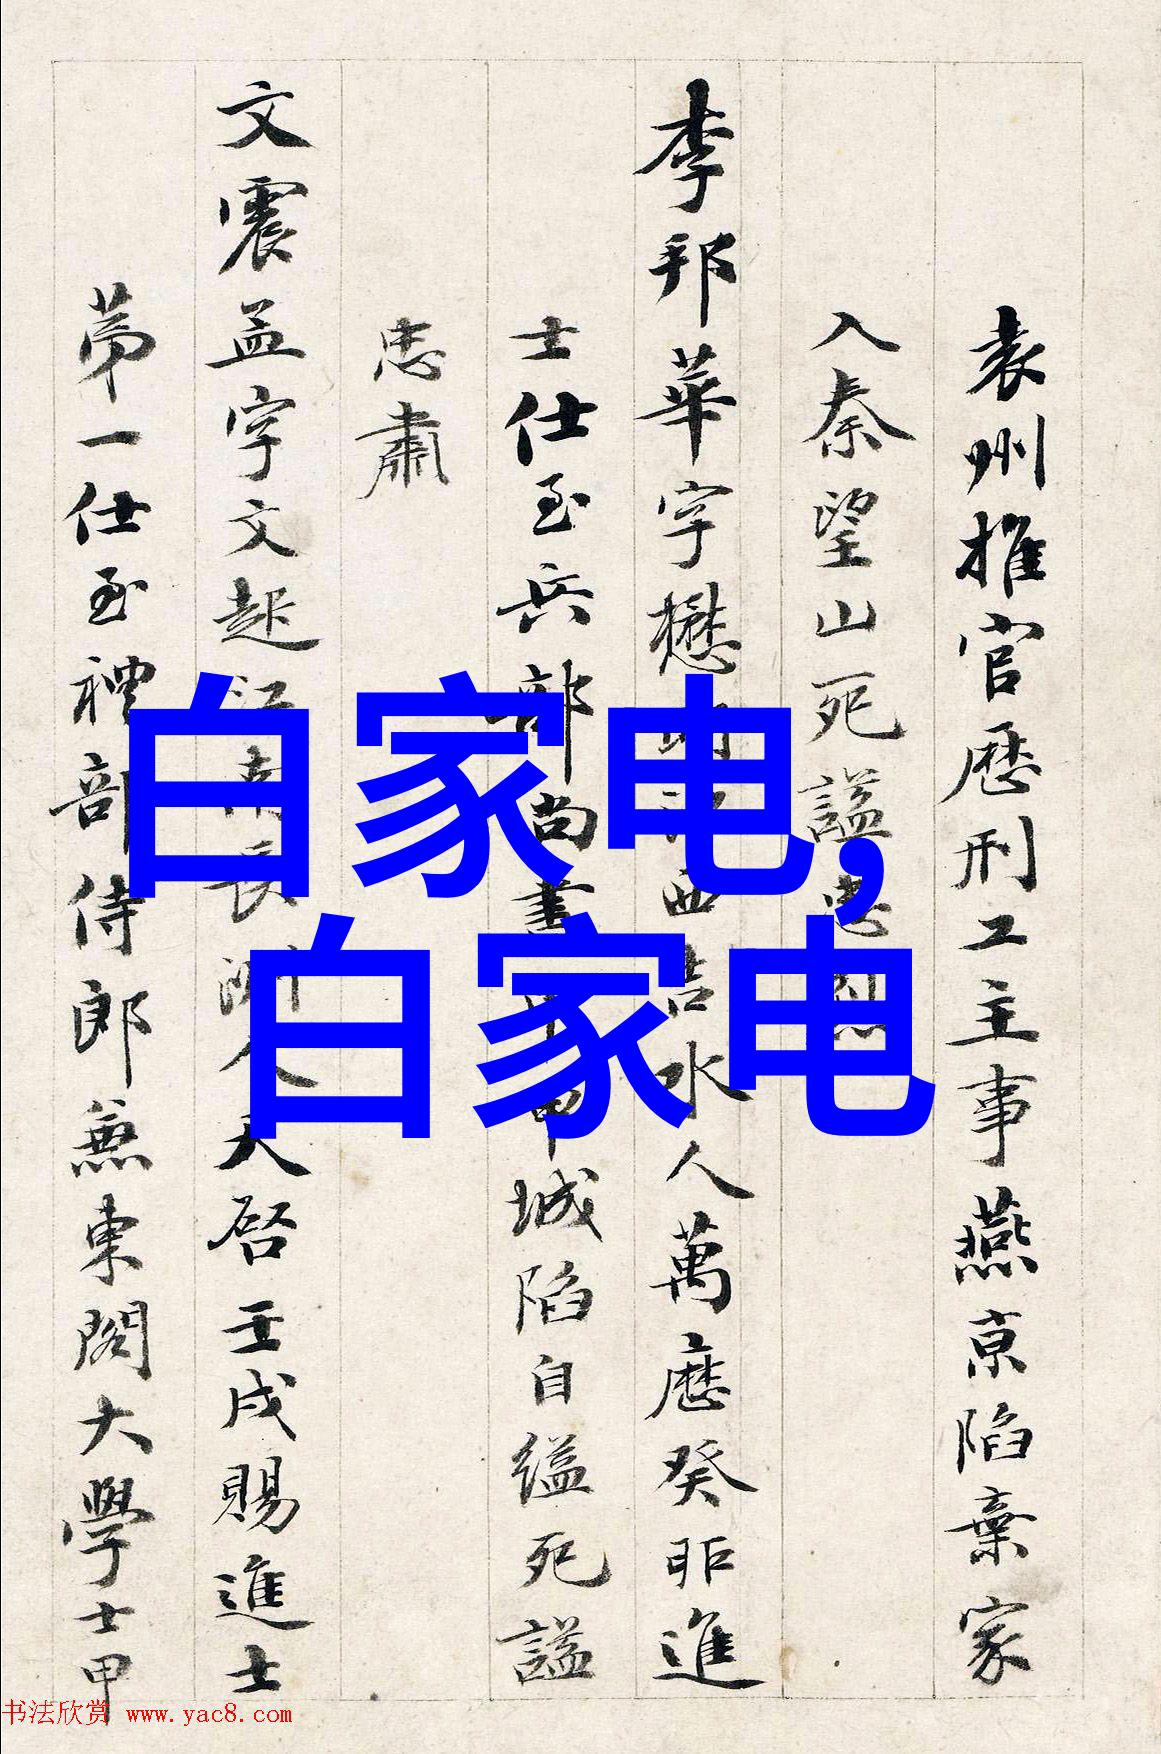 袁州推官歷刑工主事燕京陷棄家
入秦望山死謚忠烈
李邦華字懋明江西吉水人萬曆癸卯進
士仕至兵部尚書甲申城陷自縊死謚
忠肅
文震孟字文起江南長洲人天啓壬戌賜進士
第一仕至禮部侍郎兼東閣大學士甲
白家电,
白家电
书法欣赏 www.yac8.com